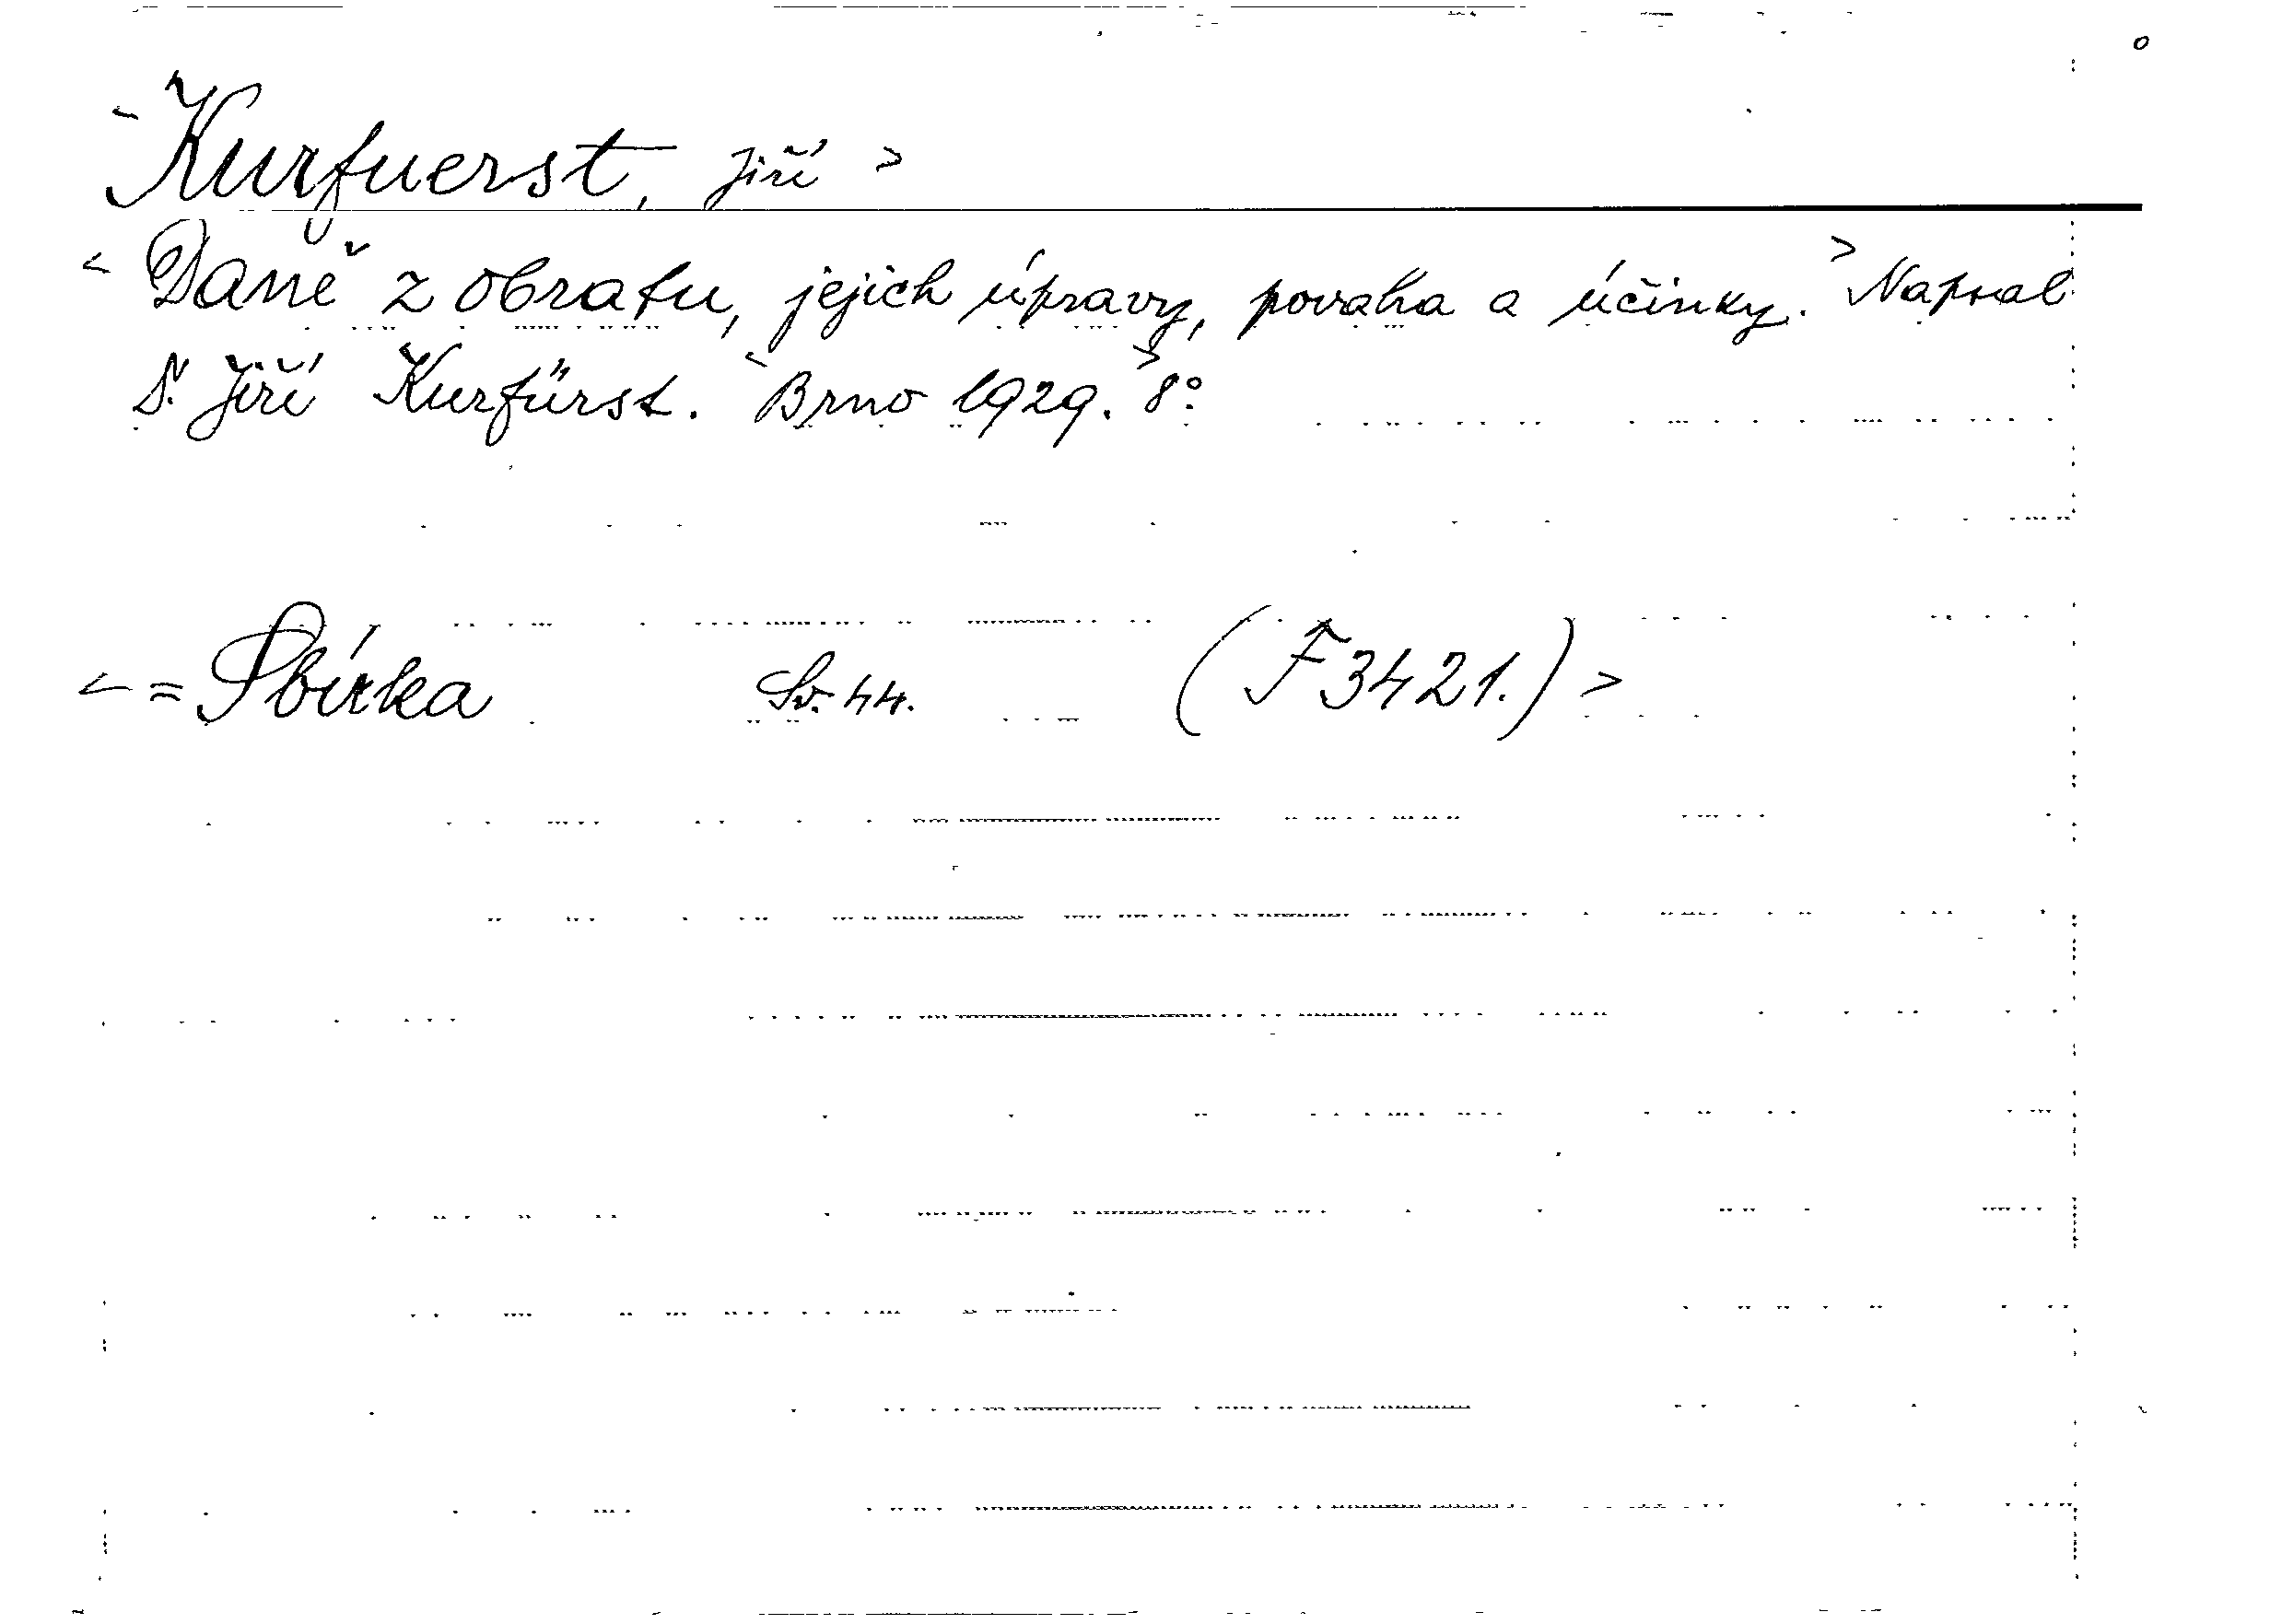 Kurfuerst, Jiří >
< Daně z obratu, jejich úpravy, povaha a účinky. > Napsal
D. Jiří Kurfürst. < Brno 1929. > 8°.
< = Sbírka Sv. 44. (F 3421.) >